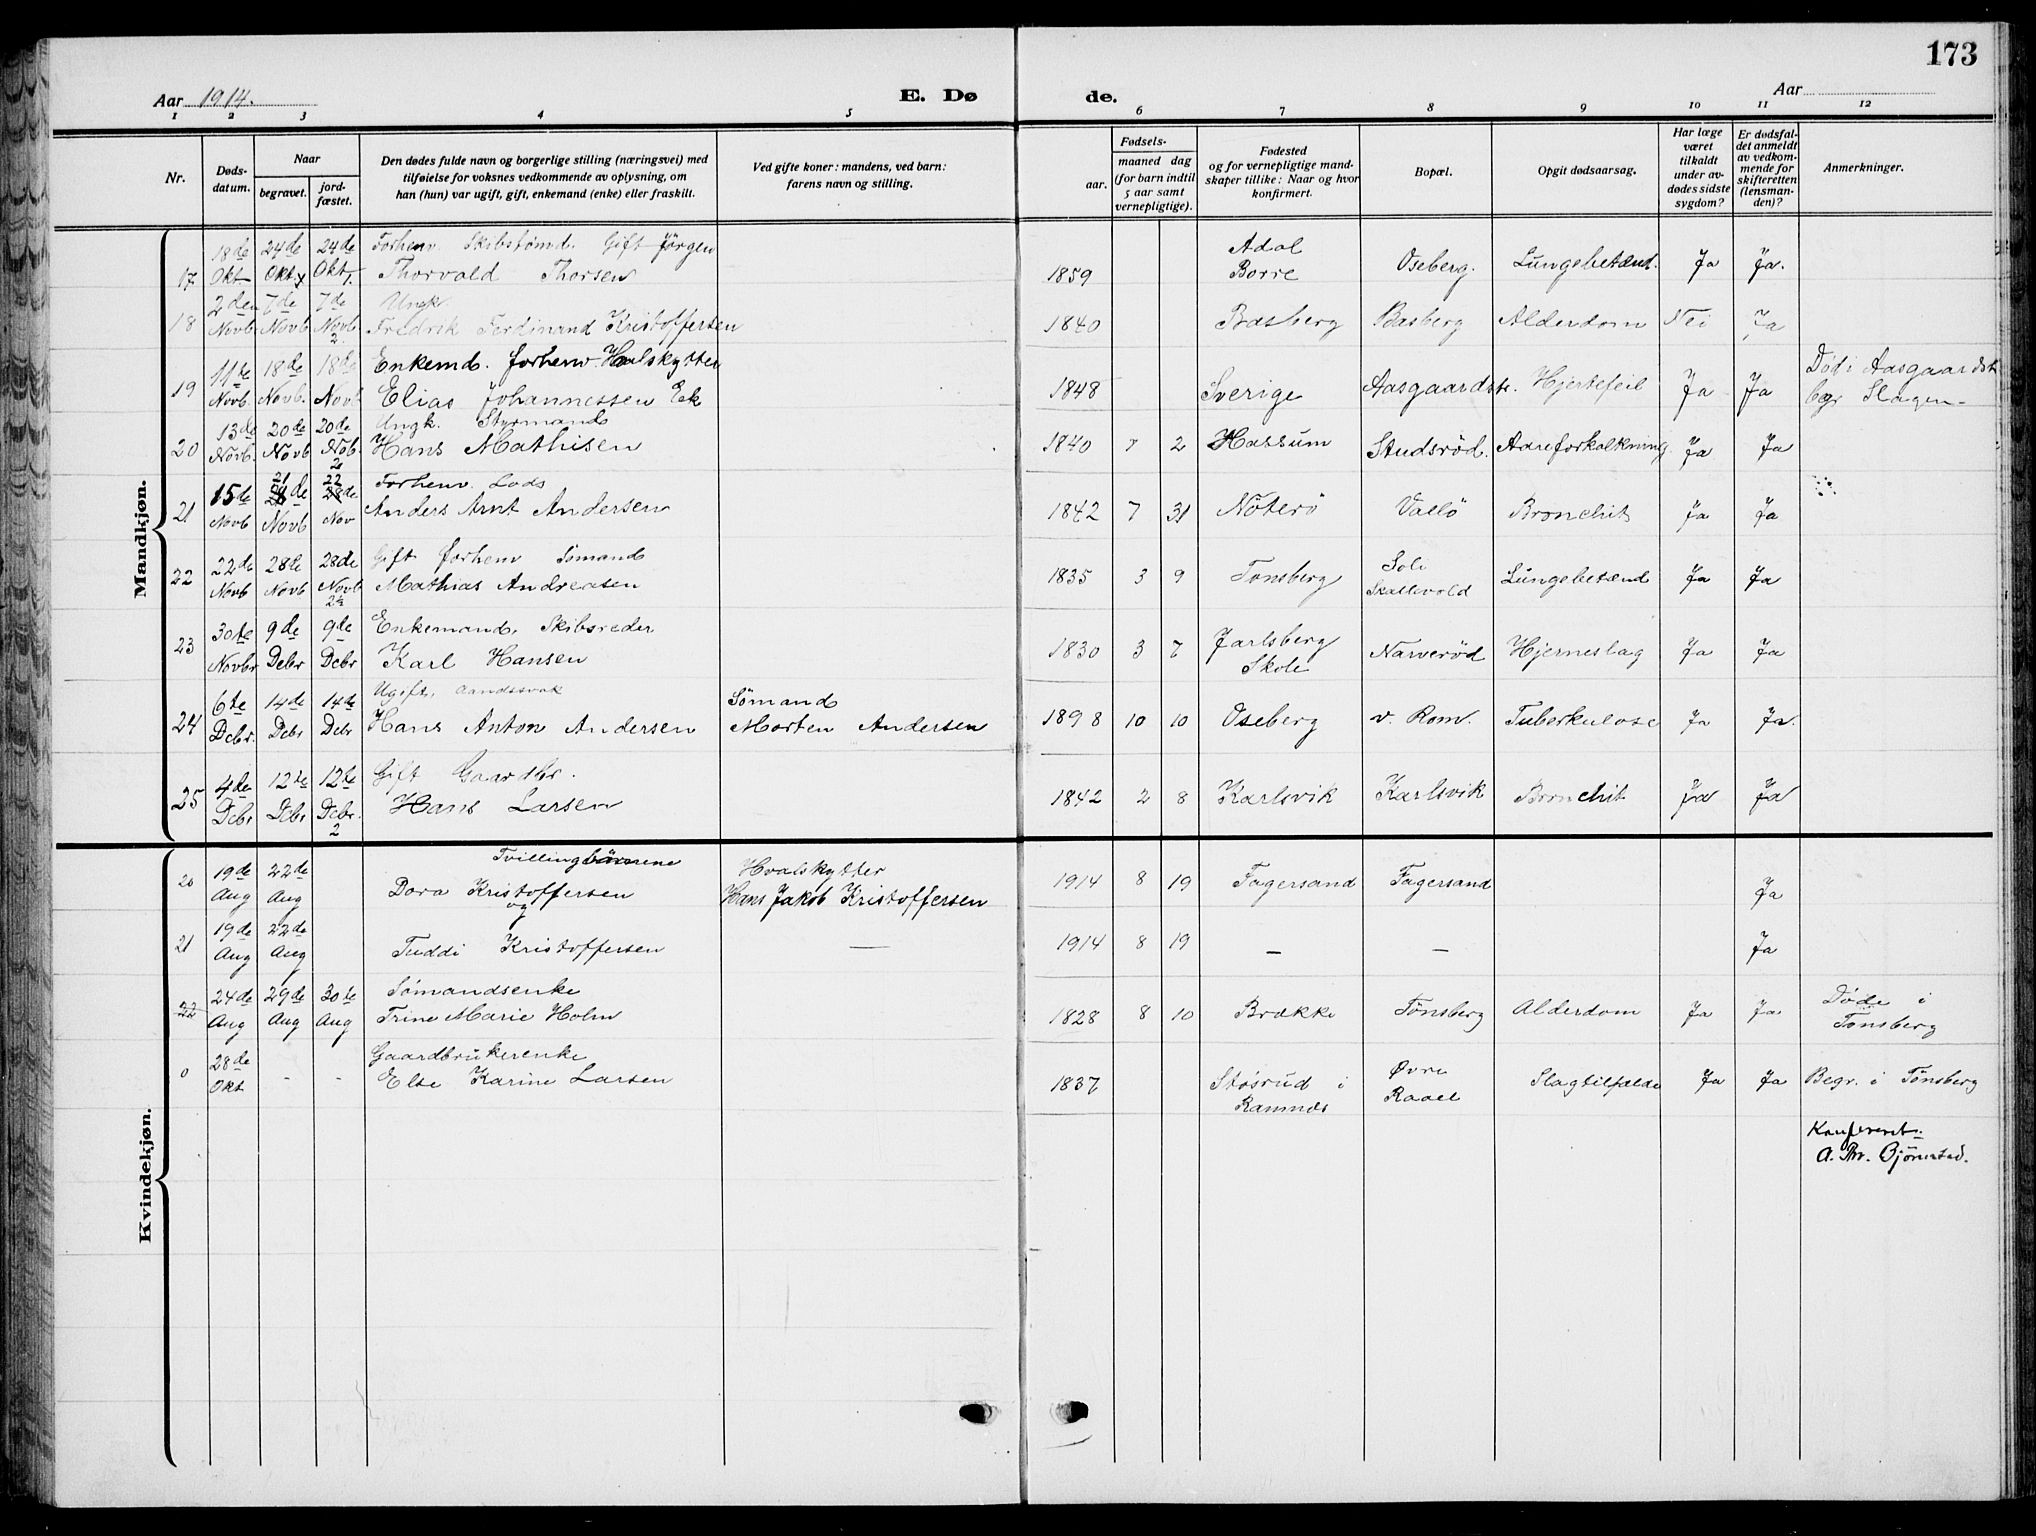 173
Aar 1914.
E. Dø
de.
Aar
1 2 3 4 5 6 7 8 9 10 11 12
Nr.
Døds-
datum.
Naar
begravet.
jord-
fæstet.
Den dødes fulde navn og borgerlige stilling (næringsvei) med
tilføielse for voksnes vedkommende av oplysning, om
han (hun) var ugift, gift, enkemand (enke) eller fraskilt.
Ved gifte koner: mandens, ved barn:
farens navn og stilling.
Fødsels-
aar.
maaned dag
(for barn indtil
5 aar samt
vernepligtige).
Fødested
og for vernepligtige mand-
skaper tillike: Naar og hvor
konfirmert.
Bopæl.
Opgit dødsaarsag.
Har læge
været
tilkaldt
under av-
dødes sidste
sygdom?
Er dødsfal-
det anmeldt
av vedkom-
mende for
skifteretten
(lensman-
den)?
Anmerkninger.
Mandkjøn.
18de 24de 24de Forhenv. Skibstømd. Gift Jörgen Adal
17 Okt Okt Okt. Thorvald Thorsen 1859 Borre Oseberg. Lungebetænd. Ja Ja.
2den 7de 7de Ungk.
18 Novb Novb Novb Fredrik Ferdinand Kristoffersen 1840 Basberg Basberg Alderdom Nei Ja
2
11te 18de 18de Enkemd. forhenv. Hvalskytter Död i Aasgaardst
19 Novb. Novb. Novb Elias Johannessen Ek 1848 Sverige Aasgaardstr. Hjertefeil Ja Ja begr Slagen
13de 20de 20de Ungk. Styrmand
20 Novb. Novb Nob. Hans Mathisen 1840 7 2 Hassum Studsröd. Aareforkalkning Ja Ja
2
21 22
15de 28de Forhenv. Lods
21 Novb Novb Nov Anders Arnt Andersen 1842 7 31 Nöterö Vallö Bronchit Ja Ja
22de 28de 28de Gift forhenv Sömand Soli
22 Novb Novb Novb Mathias Andreasen 1835 3 9 Tönsberg Skallevold Lungebetænd Ja Ja
2½
30te 9de 9de Enkemand. Skibsreder Jarlsberg
23 Novbr Debr Debr Karl Hansen 1830 3 7 Skole Narveröd Hjerneslag Ja Ja
6te 14de 14de Ugift, aandssvak Sömand
24 Debr. Debr Debr Hans Anton Andersen Morten Andersen 1898 10 10 Oseberg v. Rom. Tuberkulose Ja Ja.
4de 12te 12te Gift Gaardbr.
25 Debr Debr Debr. Hans Larsen 1842 2 8 Karlsvik Karlsvik Bronchit Ja Ja
2
Kvindekjøn.
19de 22de Tvillingbörnene Hvalskytter
20 Aug Aug Dora Kristoffersen Hans Jakob Kristoffersen 1914 8 19 Fagersand Fagersand Ja
og
19de 22de
21 Aug Aug Tuddi Kristoffersen — 1914 8 19 — — Ja
24de 29de 30te Sömandsenke Döde i
22 Aug Aug Aug Trine Marie Holm 1828 8 10 Brekke Tönsberg Alderdom Ja Ja Tönsberg
28de Gaardbrukerenke Övre
0 Okt - - Else Karine Larsen 1837 Stösrud i Raael Slagtilfælde Ja Ja Begr. i Tönsberg
Ramnes
Konfereret:
A. Thv. Bjönnstad.